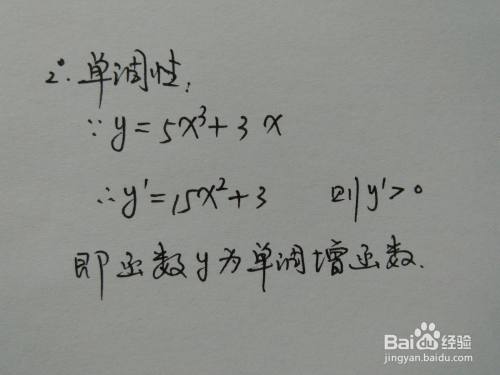 2°. 单调性:
∵ y = 5x³ + 3 x
∴ y' = 15x² + 3 则 y' > 0
即函数 y 为单调增函数.
Baidu 经验
jingyan.baidu.com